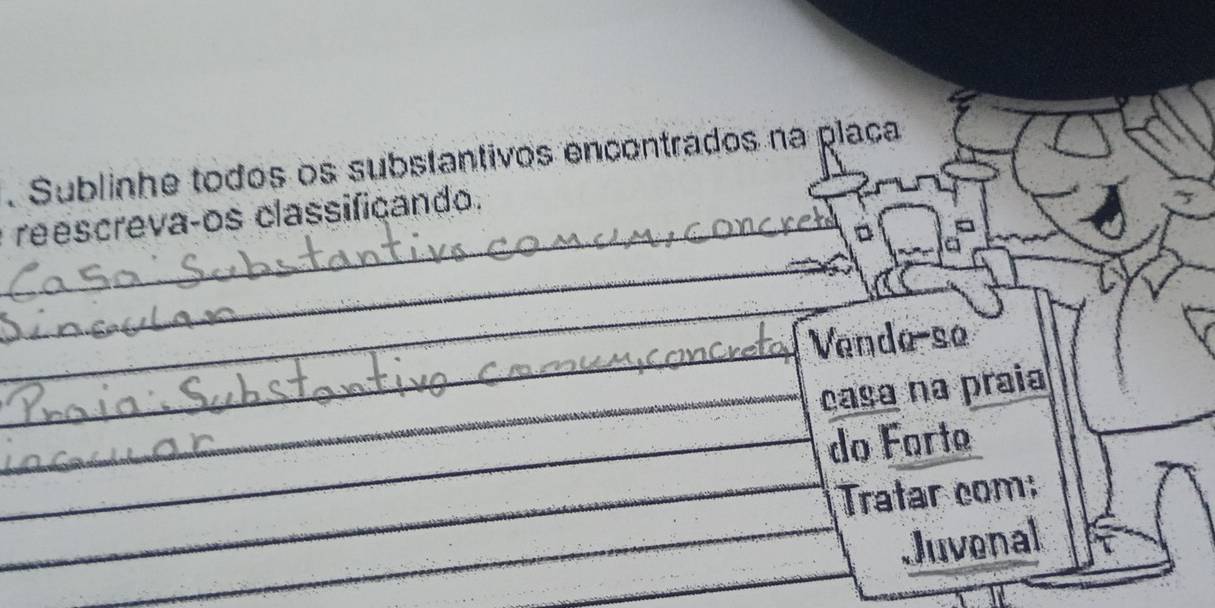 . Sublinhe todos os substantivos encontrados na placa
e reescreva-os classificando.
Casa: Substantivo comum, concreto
Singular
Praia: Substantivo comum, concreto,
singular
Vende-se
casa na praia
do Forte
Tratar com:
Juvenal